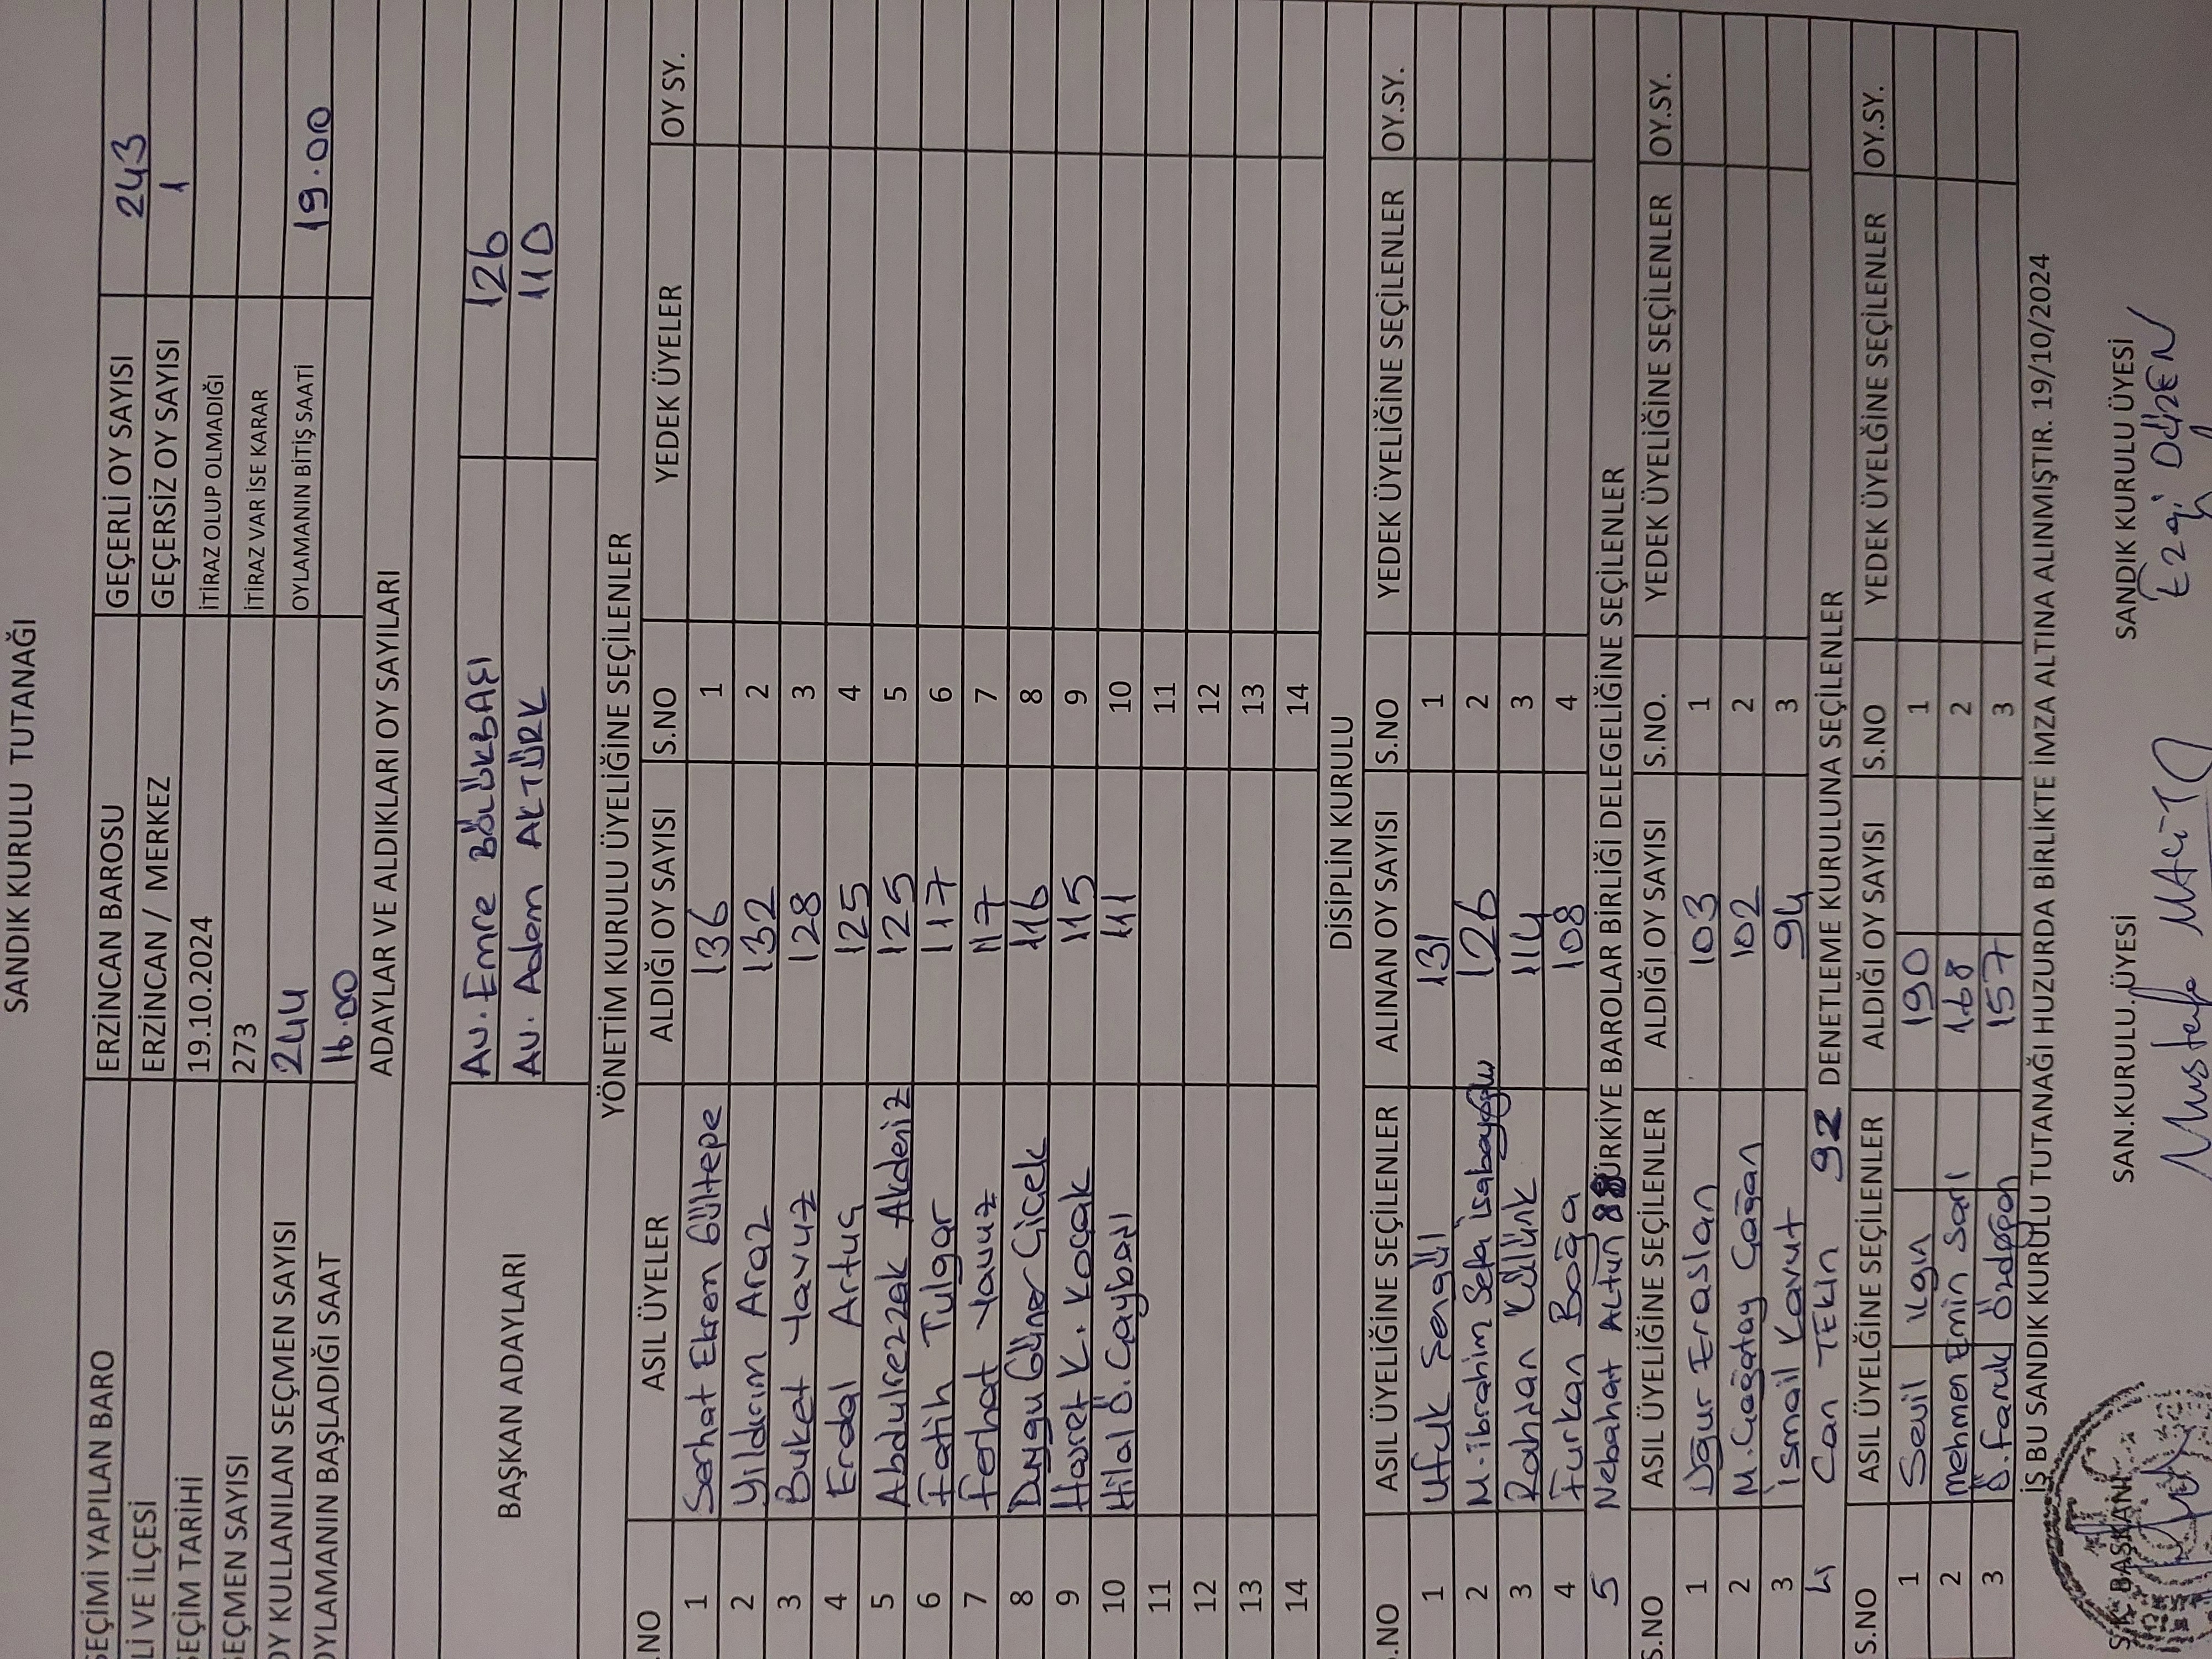 SANDIK KURULU TUTANAĞI
SEÇİMİ YAPILAN BARO ERZİNCAN BAROSU GEÇERLİ OY SAYISI 243
İLİ VE İLÇESİ ERZİNCAN / MERKEZ GEÇERSİZ OY SAYISI 1
SEÇİM TARİHİ 19.10.2024 İTİRAZ OLUP OLMADIĞI
SEÇMEN SAYISI 273 İTİRAZ VAR İSE KARAR
OY KULLANILAN SEÇMEN SAYISI 244 OYLAMANIN BİTİŞ SAATİ 19.00
OYLAMANIN BAŞLADIĞI SAAT 16.00
ADAYLAR VE ALDIKLARI OY SAYILARI
BAŞKAN ADAYLARI
Av. Emre BÖLÜKBAŞI 126
Av. Adem AKTÜRK 110
YÖNETİM KURULU ÜYELİĞİNE SEÇİLENLER
S.NO ASIL ÜYELER ALDIĞI OY SAYISI S.NO YEDEK ÜYELER OY SY.
1 Serhat Ekrem Gültepe 136 1
2 Yıldırım Araz 132 2
3 Buket Yavuz 128 3
4 Erdal Artuç 125 4
5 Abdulrezzak Akdeniz 125 5
6 Fatih Tulgar 117 6
7 Ferhat Yavuz 117 7
8 Duygu Güner Çiçek 116 8
9 Hasret K. Koçak 115 9
10 Hilal Ö. Çaybaşı 111 10
11 11
12 12
13 13
14 14
DİSİPLİN KURULU
S.NO ASIL ÜYELİĞİNE SEÇİLENLER ALINAN OY SAYISI S.NO YEDEK ÜYELİĞİNE SEÇİLENLER OY.SY.
1 Ufuk Şengül 131 1
2 M.İbrahim Sefa İsabayoğlu 126 2
3 Rahşan Külünk 114 3
4 Furkan Boğa 108 4
5 Nebahat ALTUN 88 TÜRKİYE BAROLAR BİRLİĞİ DELEGELİĞİNE SEÇİLENLER
S.NO ASIL ÜYELİĞİNE SEÇİLENLER ALDIĞI OY SAYISI S.NO. YEDEK ÜYELİĞİNE SEÇİLENLER OY.SY.
1 Uğur Eraslan 103 1
2 M.Çağatay Çağan 102 2
3 İsmail Kavut 94 3
4 Can TEKİN 92 DENETLEME KURULUNA SEÇİLENLER
S.NO ASIL ÜYELĞİNE SEÇİLENLER ALDIĞI OY SAYISI S.NO YEDEK ÜYELĞİNE SEÇİLENLER OY.SY.
1 Sevil Ilgın 190 1
2 Mehmet Emin Sarı 168 2
3 Ö.Faruk Özdoğan 157 3
İŞ BU SANDIK KURULU TUTANAĞI HUZURDA BİRLİKTE İMZA ALTINA ALINMIŞTIR. 19/10/2024
S.K BAŞKANI SAN.KURULU ÜYESİ SANDIK KURULU ÜYESİ
Mustafa Ezgi DÜZEN